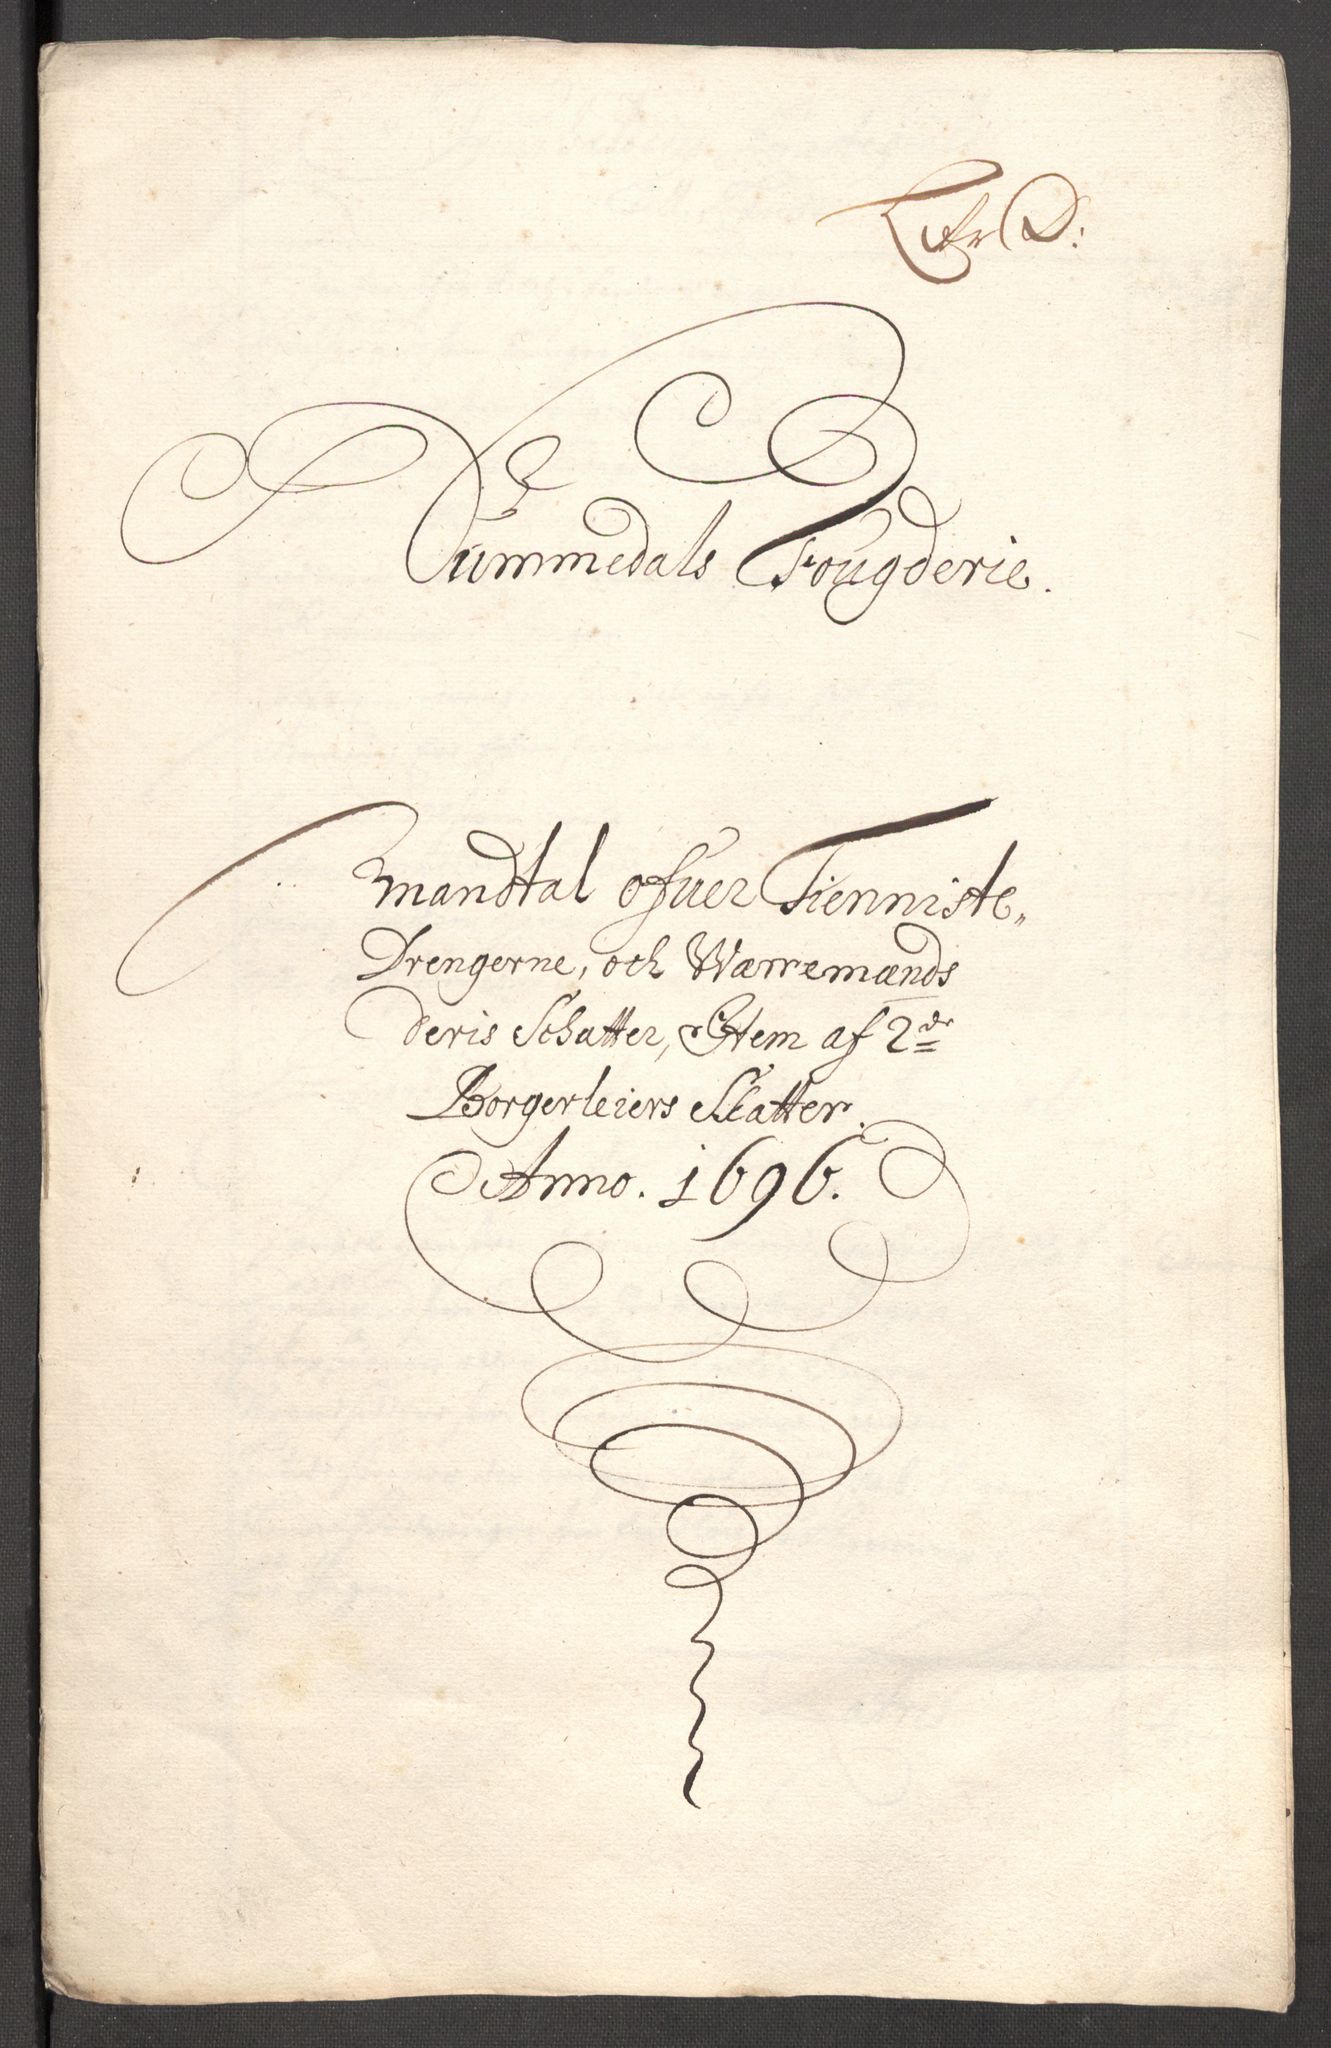 Litr D:
Nummedals Fougderie.
Mandtal ofuer Tienniste„
Drengerne, och Warremænds
deris Schatter, Item af 2de
Borgerleiers Skatter.
Anno. 1696.